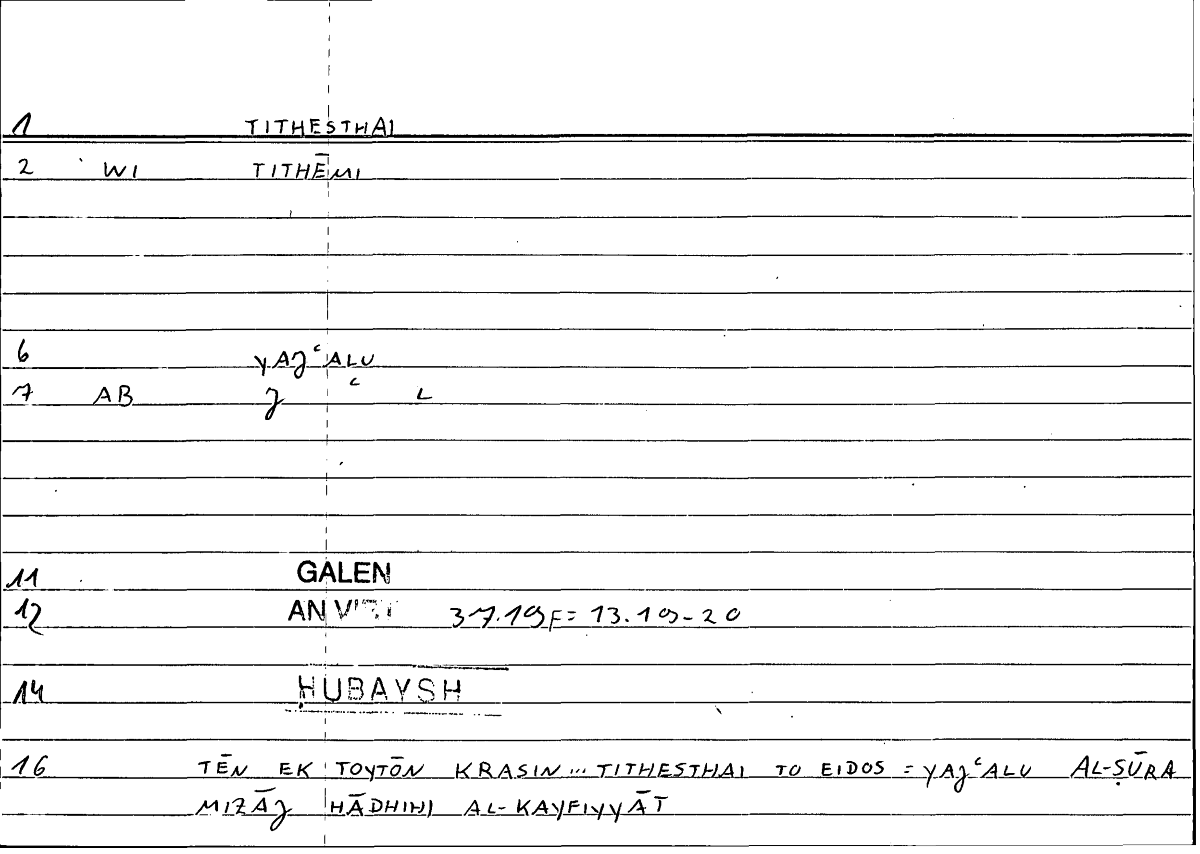 1 TITHESTHAI
2 WI TITHĒMI
6 YAJʿALU
7 AB J ʿ L
11 GALEN
12 AN VIRT 37.19F = 13.19-20
14 ḤUBAYSH
16 TĒN EK TOYTŌN KRASIN ... TITHESTHAI TO EIDOS = YAJʿALU AL-ṢŪRA
MIZĀJ HĀDHIHI AL-KAYFIYYĀT